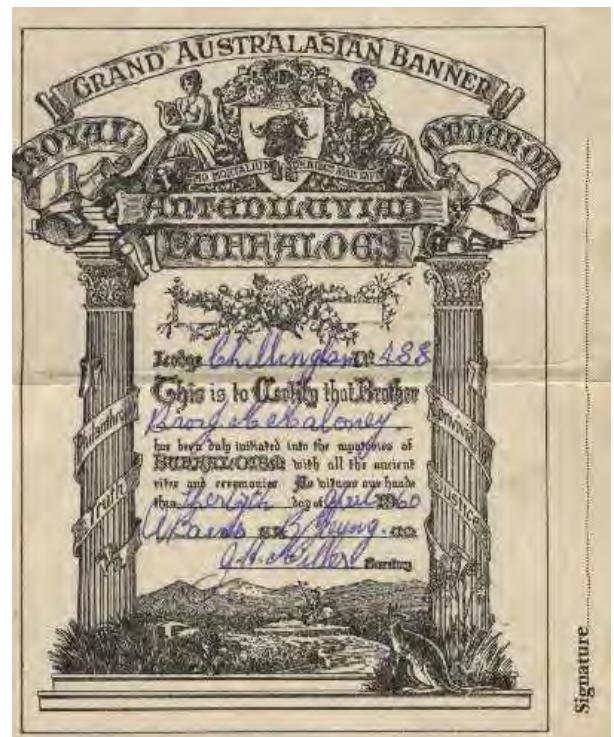 GRAND AUSTRALASIAN BANNER
ROYAL
ORDER OF
NEMO MORTALIUM OMNIBUS HORIS SAPIT
ANTEDILUVIAN
BUFFALOES
Lodge Chillingham No 488
This is to Certify that Brother
McMaloney
has been duly initiated into the mysteries of
BUFFALOISM with all the ancient
rites and ceremonies As witness our hands
this day of April 1960
Philanthropy
Conviviality
Truth
Justice
Secretary
Signature